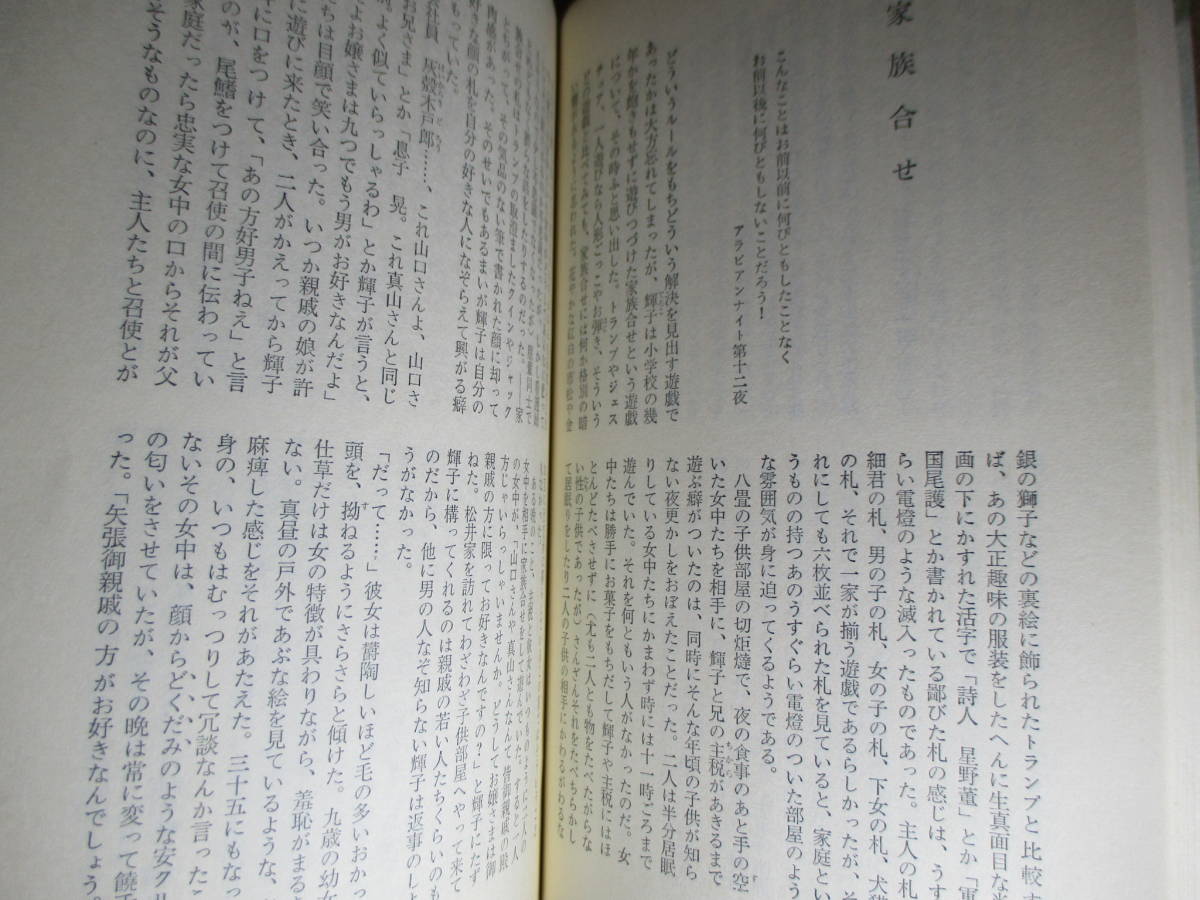 家族合せ
こんなことはお前以前に何びともしたことなく
お前以後に何びともしないことだろう!
アラビアンナイト第十二夜
どういうルールをもちどういう解決を見出す遊戯で
あったかは大方忘れてしまったが、輝子は小学校の幾
年かを飽きもせずに遊びつづけた家族合せという遊戯
について、その時ふと思い出した。トランプやジェス
チュア、一人遊びなら人形ごっこやお弾き、そういう
どの遊戯と比べてみても、家族合せには何か格別の暗
花やかな紅白の唐松や金
銀の獅子などの裏絵に飾られたトランプと比較す
ば、あの大正趣味の服装をしたへんに生真面目な
画の下にかすれた活字で「詩人 星野菫」とか「軍
国尾護」とか書かれている鄙びた札の感じは、うす
らい電燈のような滅入ったものであった。主人の札
細君の札、男の子の札、女の子の札、下女の札、犬猫
の札、それで一家が揃う遊戯であるらしかったが、そ
れにしても六枚並べられた札を見ていると、家庭とい
うものの持つあのうすぐらい電燈のついた部屋のよう
な雰囲気が身に迫ってくるようである。
八畳の子供部屋の切炬燵で、夜の食事のあと手の空
いた女中たちを相手に、輝子と兄の主税があきるまで
遊ぶ癖がついたのは、同時にそんな年頃の子供が知ら
ない夜更かしをおぼえたことだった。二人は半分居眠
りしている女中たちにかまわず時には十一時ごろまで
遊んでいた。それを何ともいう人がなかったのだ。女
中たちは勝手にお菓子をもちだして輝子や主税にはほ
とんどたべさせずに(尤も二人とも物をたべたがらな
い性の子供であったが)さんざんそれをたべちらかし
て居眠りをしたり二人の子供の相手にかわるがわるな
その賞品のない筆で書かれた顔に却って
肉感があった。そのせいでもあるまいが輝子は自分の
好きな顔の札を自分の好きな人になぞらえて興がる癖
をもっていた。
会社員 灰殻木戸郎……、これ山口さんよ、山口さ
お兄さま」とか「息子 晃。これ真山さんと同じ
よく似ていらっしゃるわ」とか輝子が言うと、
でよお嬢さまは九つでもう男がお好きなんだよ」
ちは目顔で笑い合った。いつか親戚の娘が許
に遊びに来たとき、二人がかえってから輝子
に口をつけて、「あの方好男子ねえ」と言
のが、尾鰭をつけて召使の間に伝わってい
家庭だったら忠実な女中の口からそれが父
そうなものなのに、主人たちと召使とが
女中を相手に家族合せをして遊んでいた。すると一人
の女中が、「山口さんや真山さんなんて皆御親戚の殿
方じゃいらっしゃいませんか。どうしてお嬢さまは御
親戚の方に限ってお好きなんですの?」と輝子にたず
ねた。松井家を訪れてわざわざ子供部屋へやって来て
輝子に構ってくれるのは親戚の若い人たちくらいのも
のだから、他に男の人なぞ知らない輝子は返事のしよ
うがなかった。
「だって……」彼女は欝陶しいほど毛の多いおかっ
頭を、拗ねるようにさらさらと傾けた。九歳の幼女
仕草だけは女の特徴が具わりながら、羞恥がまる
ない。真昼の戸外であぶな絵を見ているような、
麻痺した感じをそれがあたえた。三十五にもなっ
身の、いつもはむっつりして冗談なんか言ったこ
ないその女中は、顔からどくだみのような安ク
の匂いをさせていたが、その晩は常に変って饒舌
った。「矢張御親戚の方がお好きなんでしょう。